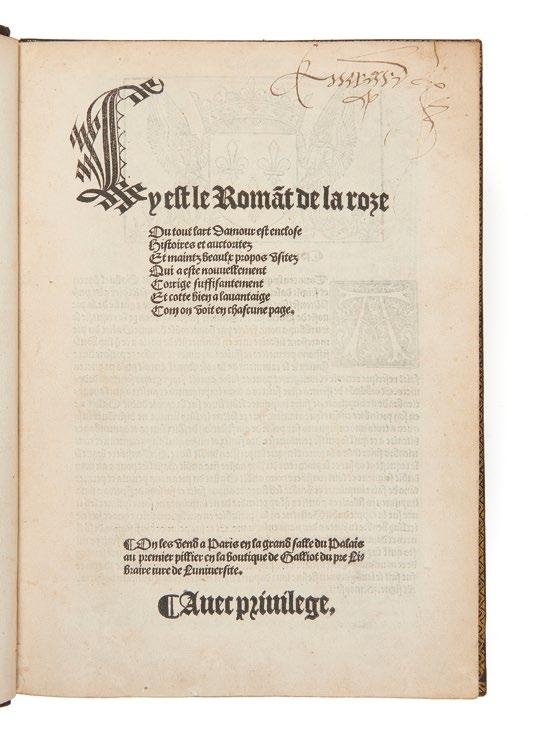 Cy est le Romãt de la roze
Ou tout lart Damour est enclose
Histoires et auctoritez
Et maintz beaulx propos vsitez
Qui a este nouuellement
Corrige suffisantement
Et cotte bien a lauantaige
Com on voit en chascune page.
¶On les vend a Paris en la grand salle du Palais
au premier pillier en la boutique de Galliot du pre Li-
braire iure de Luniuersite.
¶Auec priuilege.